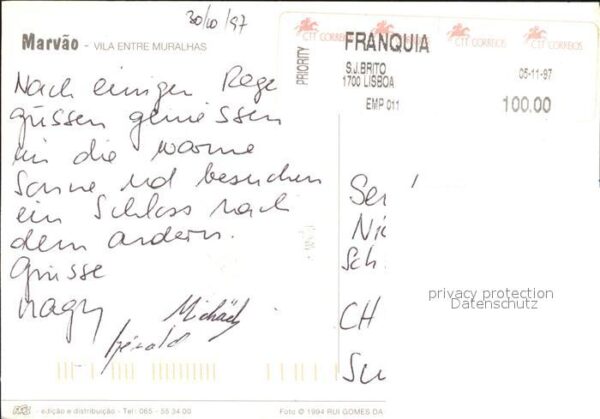 30/10/97
Marvão - VILA ENTRE MURALHAS
Nach einigen Rege
güssen geniessen
wir die warme
Sonne und besuchen
ein Schloss nach
dem andern.
Grüsse
Michäel
Gérald
CTT CORREIOS
CTT CORREIOS
PRIORITY
FRANQUIA
S.J.BRITO
1700 LISBOA
05-11-97
EMP 011
100.00
Sch
CH
privacy protection
Datenschutz
- edição e distribuição - Tel : 065 - 55 34 00
Foto © 1994 RUI GOMES DA